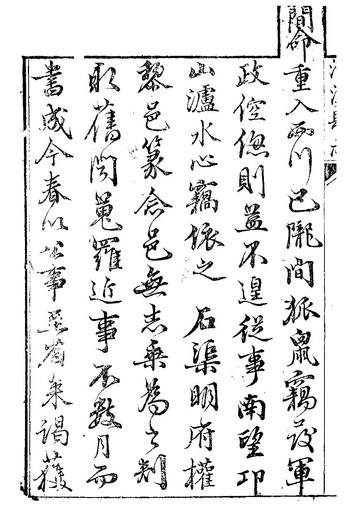 簡命重入西川巴隴間狐鼠竊發軍
政倥傯則益不遑從事南望邛
山瀘水心竊依之 石渠明府權
黎邑篆念邑無志乘為之判
取舊聞蒐羅近事不數月而
書成今春以公事至省來謁獲